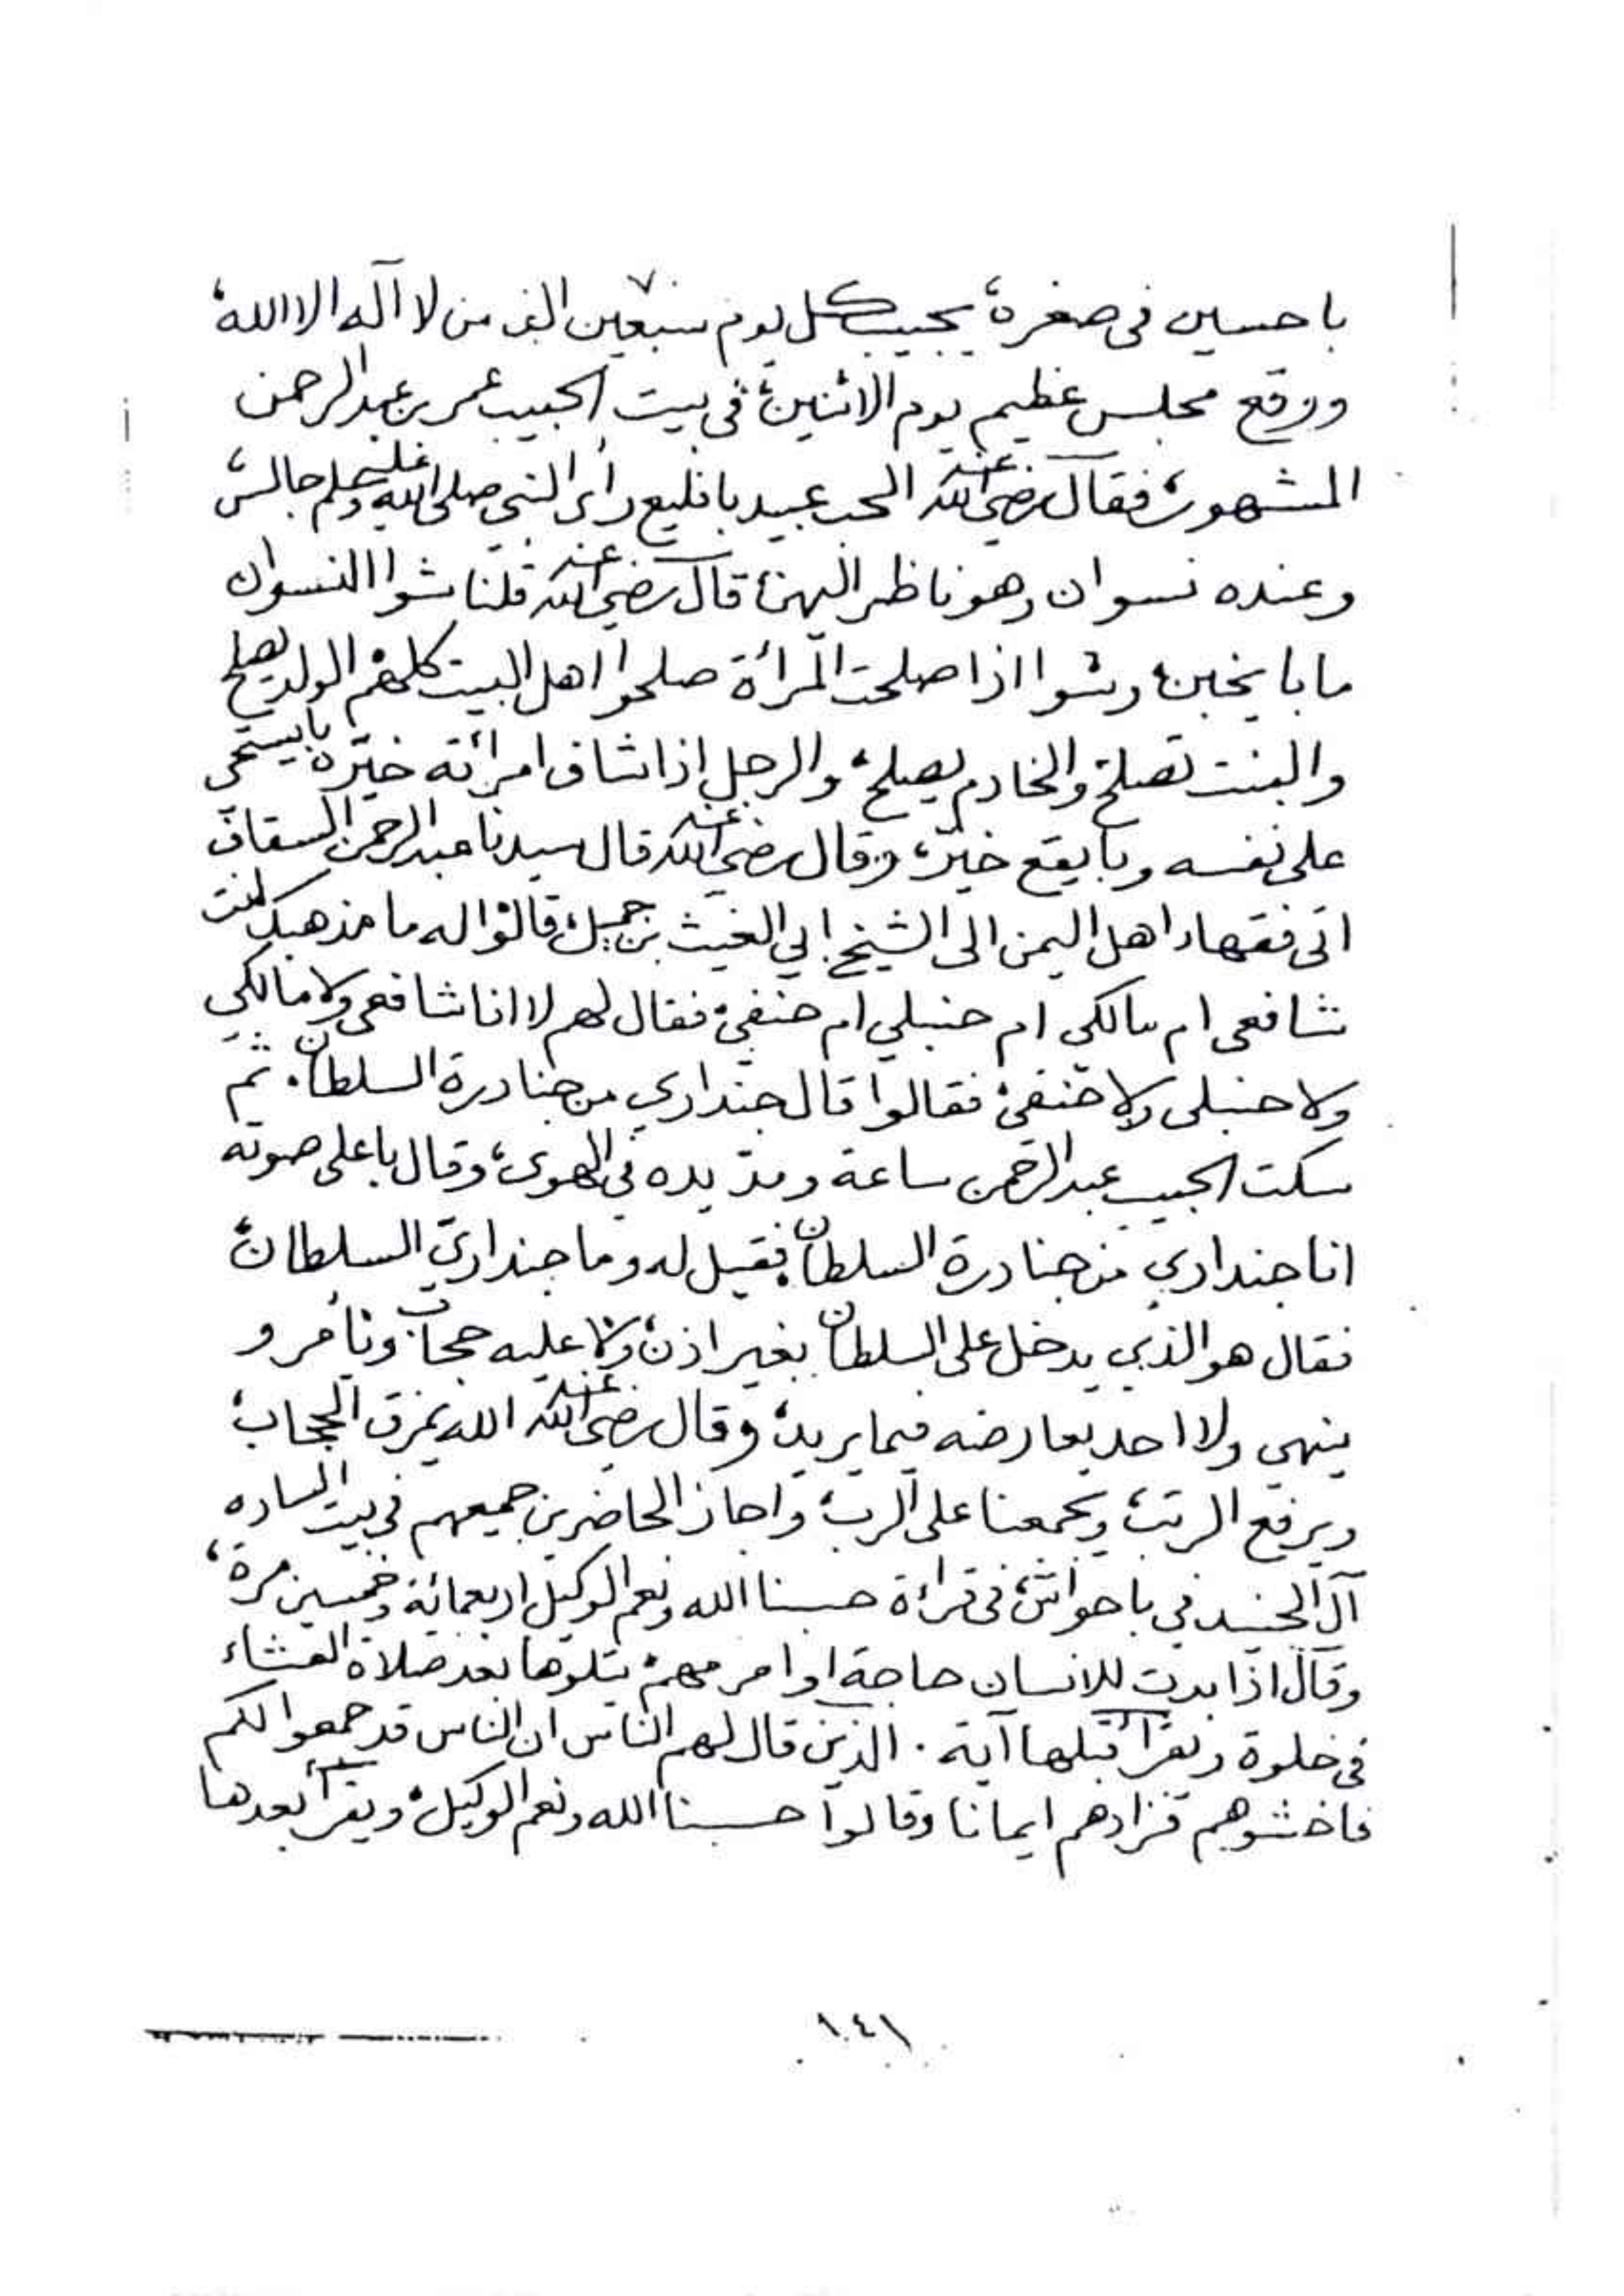 باحسين في صغره، يجيب كل يوم سبعين الف من لا آله الا الله،
ووقع مجلس عظيم يوم الاثنين، في بيت الحبيب عمر بن عبدالرحمن
المشهور، فقال رضي الله عنه المحب عبيد بافليع رأى النبي صلى الله عليه وسلم جالس،
وعنده نسوان وهو ناظر اليهن، قال رضي الله عنه قلنا شوا النسوان
ما با يخبن، وشوا اذا صلحت المرأة صلحوا اهل البيت كلهم، الولد يصلح
والبنت تصلح، والخادم يصلح، والرجل اذا شاف امرأته خيّره بايستحي
على نفسه وبايقع خيّر، وقال رضي الله عنه قال سيدنا عبدالرحمن السقاف
اتى فقهاء اهل اليمن الى الشيخ ابي الغيث بن جميل، قالوا له ما مذهبك انت
شافعي ام مالكي ام حنبلي ام حنفي، فقال لهم لا انا شافعي ولا مالكي
ولا حنبلي ولا حنفي، فقالوا قال جنداري من جنادرة السلطان. ثم
سكت الحبيب عبدالرحمن ساعة ومدّ يده في الهوى، وقال باعلى صوته
انا جنداري من جنادرة السلطان، فقيل له وما جنداريّ السلطان،
فقال هو الذي يدخل على السلطان بغير اذن، ولا عليه حجاب، ويأمر و
ينهي ولا احد يعارضه فيما يريد، وقال رضي الله عنه الله يمزق الحجاب،
ويرفع الرتب، ويجمعنا على الرب، واجاز الحاضرين جميعهم في بيت الساده
آل الجنيد في باحواش، في قراءة حسبنا الله ونعم الوكيل اربعمائة وخمسين مرة،
وقال اذا بدت للانسان حاجة او امر مهم، يتلوها بعد صلاة العشاء
في خلوة ويقرأ قبلها آية. الذين قال لهم الناس ان الناس قد جمعوا لكم
فاخشوهم فزادهم ايمانا وقالوا حسبنا الله ونعم الوكيل، ويقرأ بعدها
١٤١